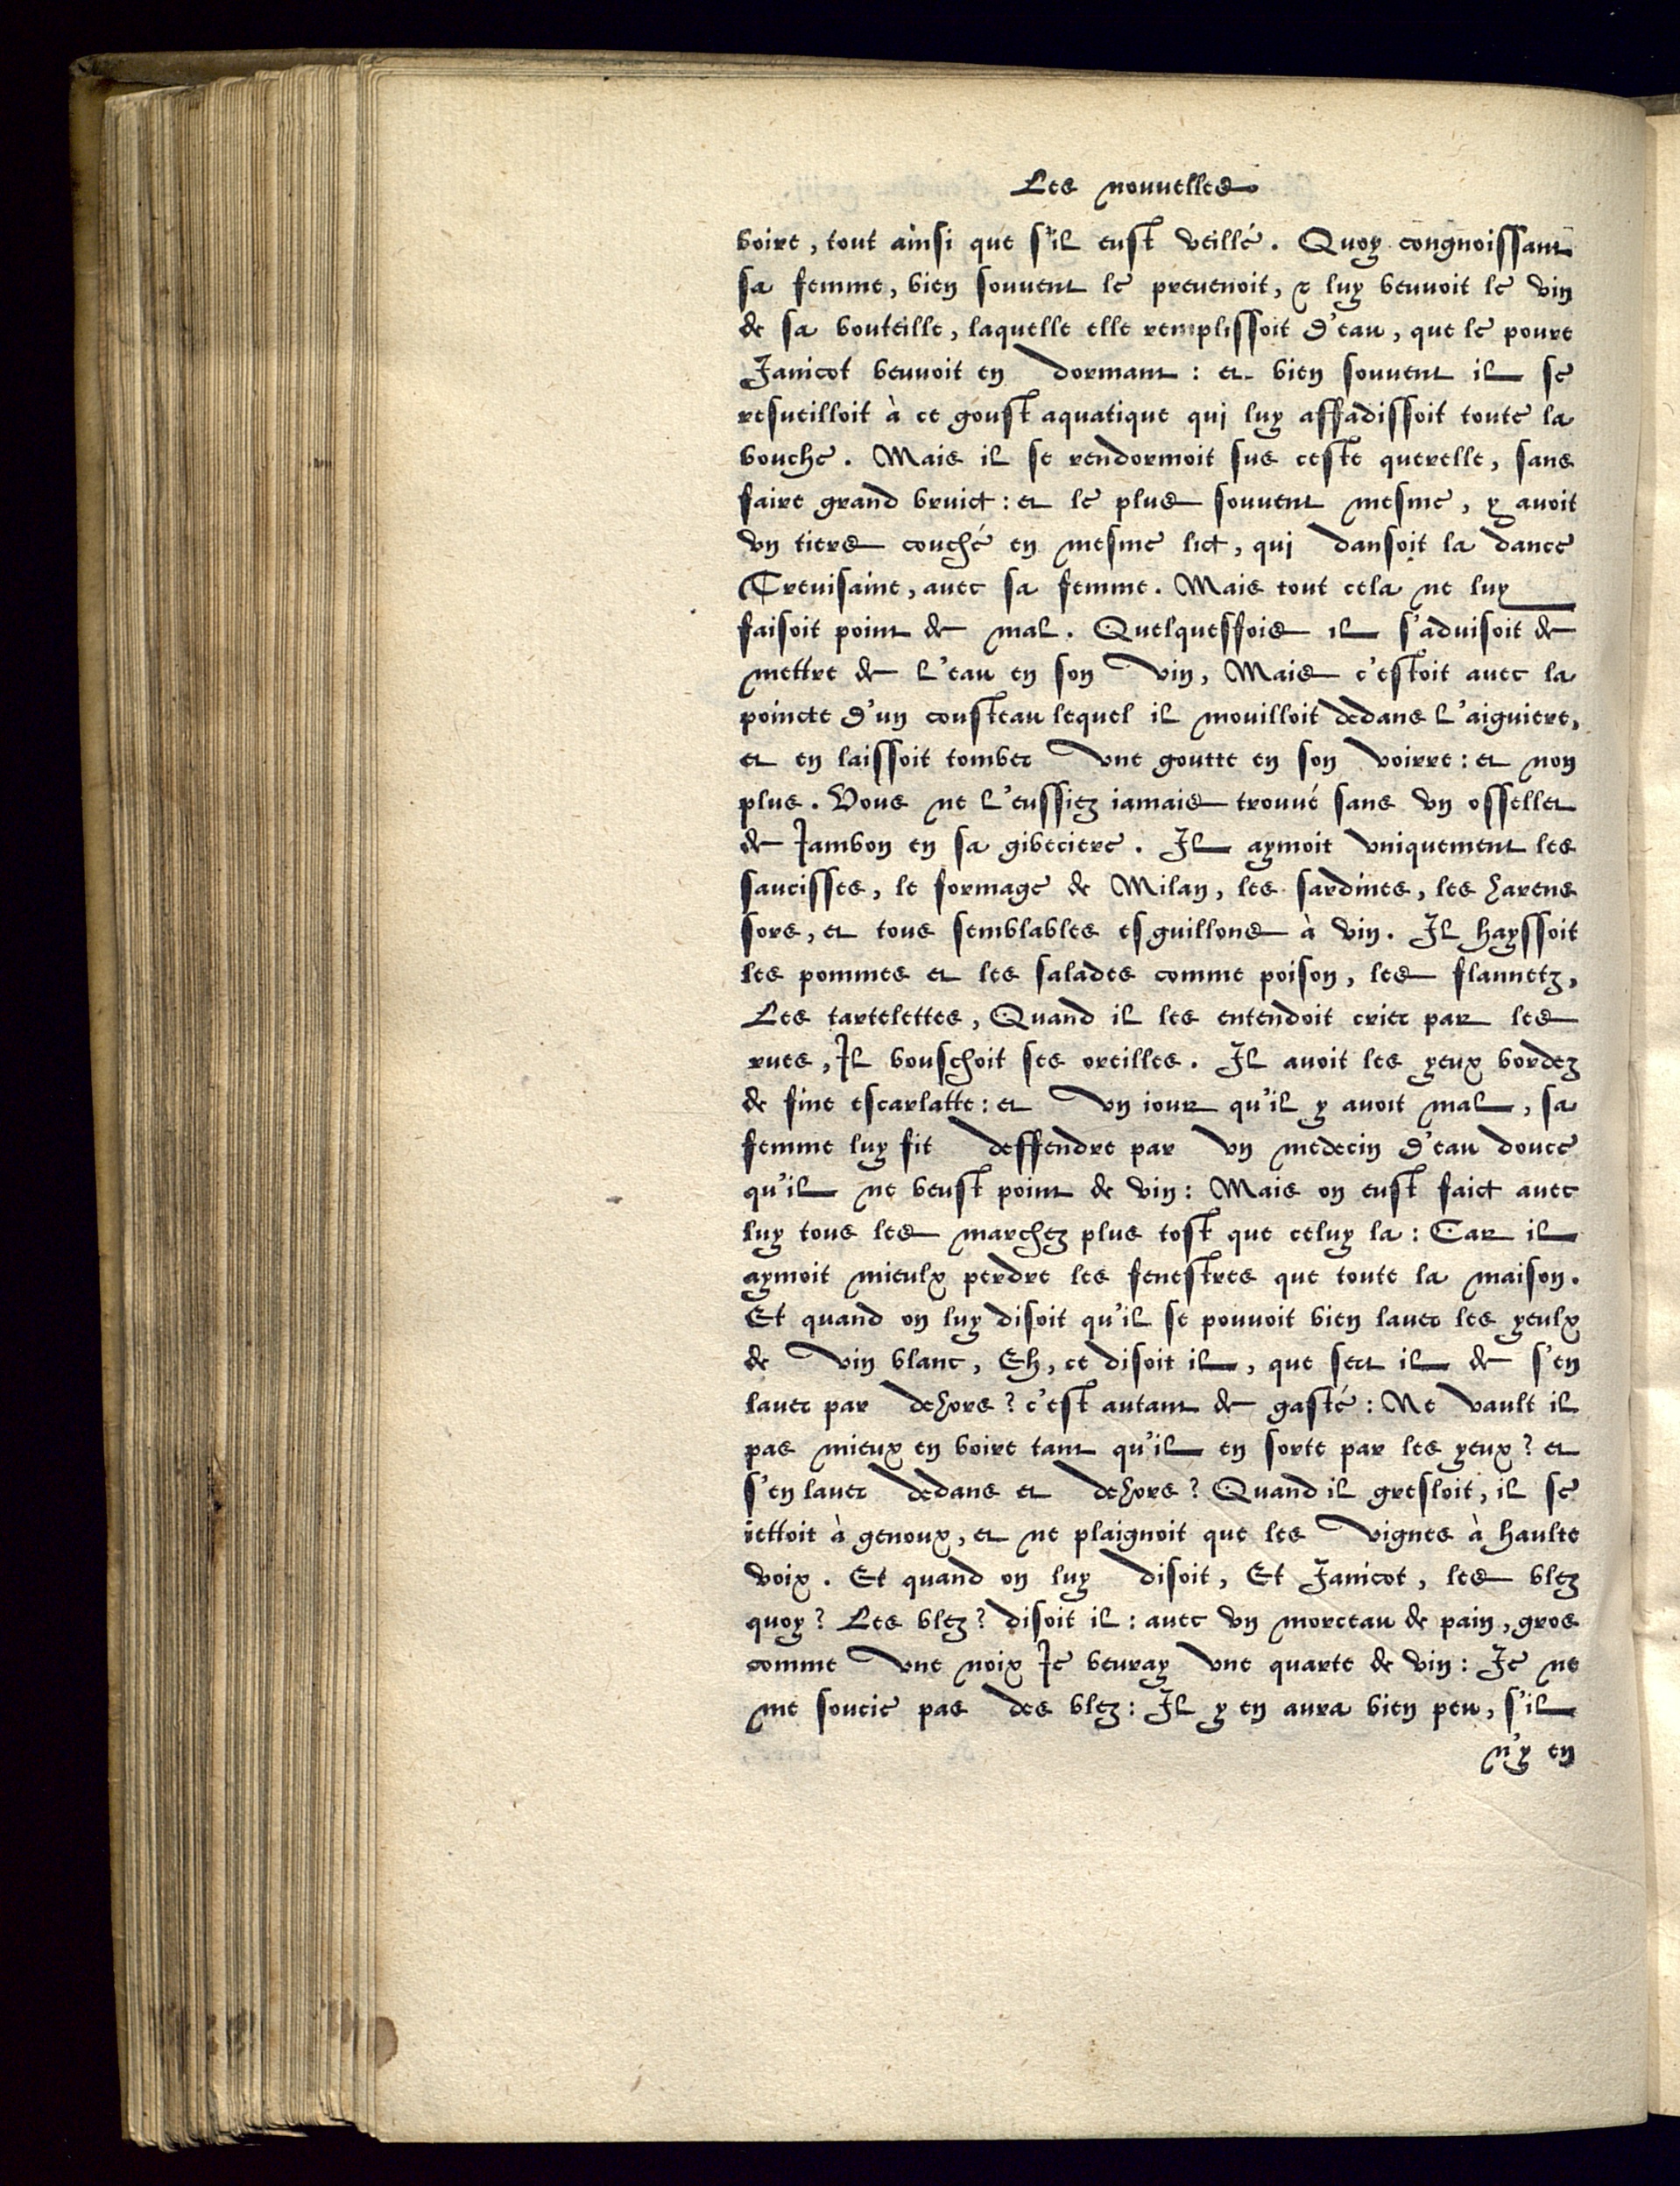 Les nouuelles
boire, tout ainsi que s'il eust veillé. Quoy congnoissant
sa femme, bien souuent le preuenoit, & luy beuuoit le vin
de sa bouteille, laquelle elle remplissoit d'eau, que le poure
Janicot beuuoit en dormant : et bien souuent il se
resueilloit à ce goust aquatique qui luy affadissoit toute la
bouche. Mais il se rendormoit sus ceste querelle, sans
faire grand bruict : et le plus souuent mesme, y auoit
vn tiers couché en mesme lict, qui dansoit la dance
Treuisaine, auec sa femme. Mais tout cela ne luy
faisoit point de mal. Quelquesfois il s'aduisoit de
mettre de l'eau en son vin, Mais c'estoit auec la
poincte d'un cousteau lequel il mouilloit dedans l'aiguiere,
et en laissoit tomber vne goutte en son voirre : et non
plus. Vous ne l'eussiez iamais trouué sans vn ossellet
de Jambon en sa gibeciere. Il aymoit vniquement les
saucisses, le formage de Milan, les sardines, les harens
sors, et tous semblables esguillons à vin. Il hayssoit
les pommes et les salades comme poison, les flannetz,
Les tartelettes, Quand il les entendoit crier par les
rues, Il bouschoit ses oreilles. Il auoit les yeux bordez
de fine escarlatte : et vn iour qu'il y auoit mal, sa
femme luy fit deffendre par vn medecin d'eau douce
qu'il ne beust point de vin : Mais on eust faict auec
luy tous les marchez plus tost que celuy la : Car il
aymoit mieulx perdre les fenestres que toute la maison.
Et quand on luy disoit qu'il se pouuoit bien lauer les yeulx
de vin blanc, Eh, ce disoit il, que sert il de s'en
lauer par dehors ? c'est autant de gasté : Ne vault il
pas mieux en boire tant qu'il en sorte par les yeux ? et
s'en lauer dedans et dehors ? Quand il gresloit, il se
iettoit à genoux, et ne plaignoit que les vignes à haulte
voix. Et quand on luy disoit, Et Janicot, les blez
quoy ? Les blez ? disoit il : auec vn morceau de pain, gros
comme vne noix Je beuray vne quarte de vin : Je ne
me soucie pas des blez : Il y en aura bien peu, s'il
n'y en